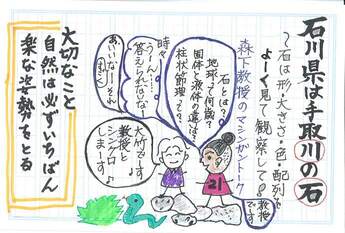 石川県は手取川の石
～石は形・大きさ・色・配列を
よーく見て観察して！
森下教授のマシンガントーク
石とは？
地球って何歳？
固体と液体の違いは？
柱状節理って？
時々
うーん…
答えられないな
あいいな…それ
大竹です
教授と
シンクロ
します
教授
です
21
大切なこと
自然は必ずいちばん
楽な姿勢をとる